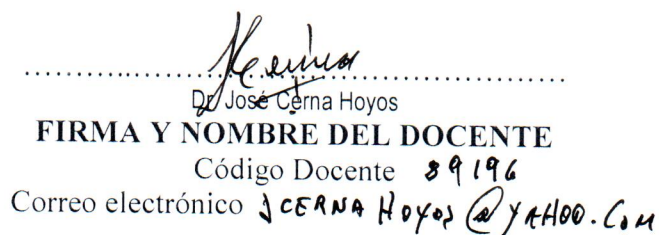 Dr. José Cerna Hoyos
FIRMA Y NOMBRE DEL DOCENTE
Código Docente 89196
Correo electrónico JCERNAHOYOS@YAHOO.COM